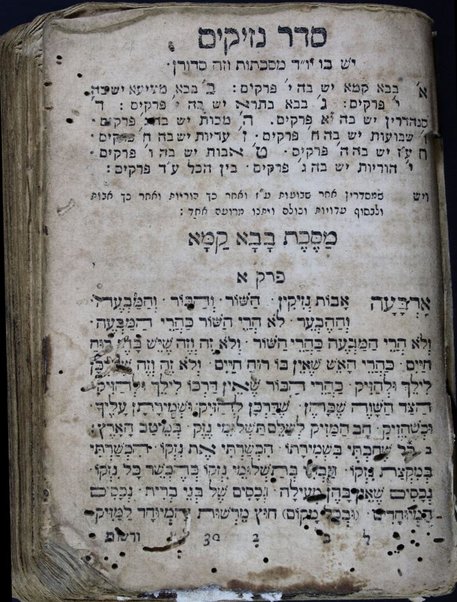 סדר נזיקים
יש בו יו״ד מסכתות וזה סדורן׳
א׳ בבא קמא יש בה י׳ פרקים: ב׳ בבא מציעא יש בה
י׳ פרקים: ג׳ בבא בתרא יש בה י׳ פרקים: ד׳
סנהדרין יש בה י״א פרקים. ה׳ מכות יש בה ג׳ פרקים.
ו׳ שבועות יש בה ח׳ פרקים. ז׳ עדיות יש בה ח׳ פרקים.
ח׳ ע״ז יש בה ה׳ פרקים. ט׳ אבות יש בה ו׳ פרקים.
י׳ הוריות יש בה ג׳ פרקים. בין הכל ע״ד פרקים:
ויש שמסדרין אחר שבועות ע״ז ואחר כך הוריות ואחר כך אבות
ולבסוף עדויות וכולם ניתנו מרועה אחד:
מַסֶּכֶת בָּבָא קַמָּא
פרק א
אַרְבָּעָה אֲבוֹת נְזִיקִין. הַשּׁוֹר. וְהַבּוֹר. וְהַמַּבְעֶה.
וְהַהֶבְעֵר. לֹא הֲרֵי הַשּׁוֹר כַּהֲרֵי הַמַּבְעֶה.
וְלֹא הֲרֵי הַמַּבְעֶה כַּהֲרֵי הַשּׁוֹר. וְלֹא זֶה וָזֶה שֶׁיֵּשׁ בָּהֶן רוּחַ
חַיִּים. כַּהֲרֵי הָאֵשׁ שֶׁאֵין בּוֹ רוּחַ חַיִּים. וְלֹא זֶה וָזֶה שֶׁדַּרְכָּן
לֵילֵךְ וּלְהַזִּיק. כַּהֲרֵי הַבּוֹר שֶׁאֵין דַּרְכּוֹ לֵילֵךְ וּלְהַזִּיק.
הַצַּד הַשָּׁוֶה שֶׁבָּהֶן. שֶׁדַּרְכָּן לְהַזִּיק וּשְׁמִירָתָן עָלֶיךָ.
וּכְשֶׁהִזִּיק. חָב הַמַּזִּיק לְשַׁלֵּם תַּשְׁלוּמֵי נֶזֶק. בְּמֵיטַב הָאָרֶץ:
ב כָּל שֶׁחַבְתִּי בִּשְׁמִירָתוֹ. הִכְשַׁרְתִּי אֶת נִזְקוֹ. הִכְשַׁרְתִּי
בְּמִקְצָת נִזְקוֹ. חַבְתִּי בְּתַשְׁלוּמֵי נִזְקוֹ כְּהֶכְשֵׁר כָּל נִזְקוֹ.
נְכָסִים שֶׁאֵין בָּהֶן מְעִילָה. נְכָסִים שֶׁל בְּנֵי בְרִית. נְכָסִים
הַמְיוּחָדִים. (וּבְכָל מָקוֹם) חוּץ מֵרְשׁוּת הַמְיוּחָד לַמַּזִּיק.
ל ב ב 30 ורשות